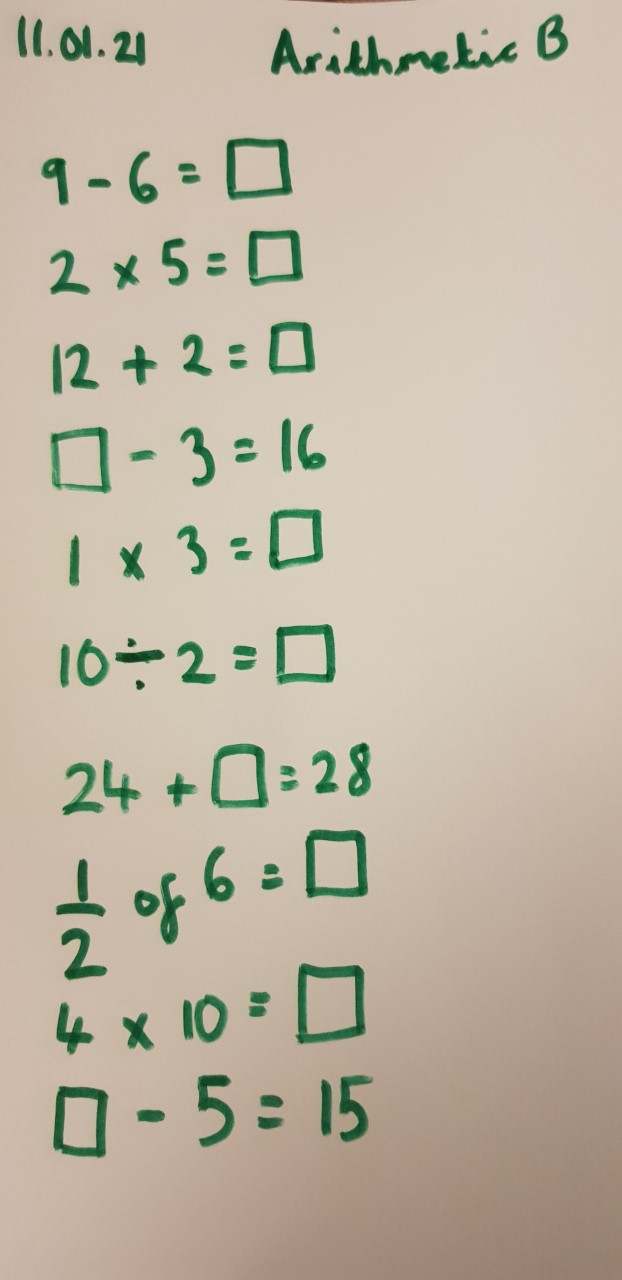 11.01.21 Arithmetic B
9 - 6 = □
2 × 5 = □
12 + 2 = □
□ - 3 = 16
1 × 3 = □
10 ÷ 2 = □
24 + □ = 28
1/2 of 6 = □
4 × 10 = □
□ - 5 = 15